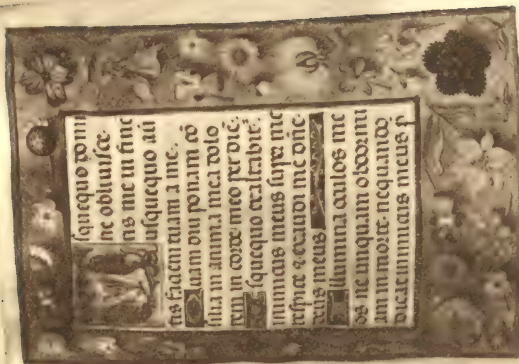 squequo domi
ne obliuisce
ris me in fine
usquequo auͥ
tis faciem tuam a me.
Quam diu ponam cō
silia in anima mea dolo
rem in corde meo per diē.
Vsquequo exaltabit᷑
inimicus meus super me
respice & exaudi me dñe
deus meus
Illumina oculos me
os ne unquam obdormi
am in morte. nequando
dicat inimicus meus p